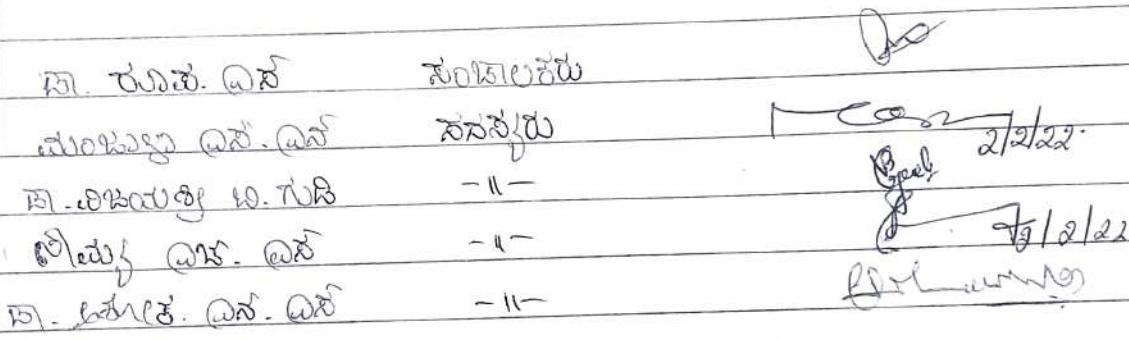 ಡಾ. ರೂಪ. ಎಸ್ ಸಂಚಾಲಕರು
ಮಂಜುಳಾ ಎಸ್. ಎಸ್ ಸದಸ್ಯರು 2/2/22.
ಡಾ. ವಿಜಯಶ್ರೀ ಬಿ. ಗುಡಿ -॥-
ಎಚ್. ಎಸ್ -॥- 2/2/22
ಡಾ. ಎಸ್. ಎಸ್ -॥-